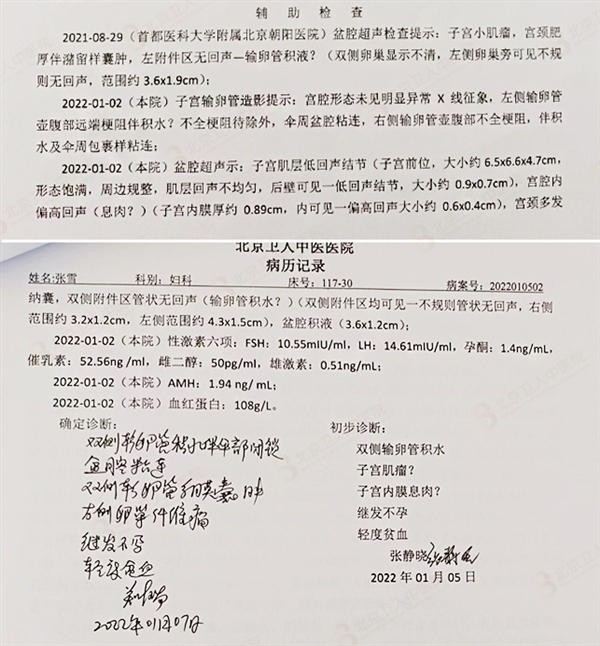 辅 助 检 查
2021-08-29（首都医科大学附属北京朝阳医院）盆腔超声检查提示：子宫小肌瘤，宫颈肥
厚伴潴留样囊肿，左附件区无回声—输卵管积液？（双侧卵巢显示不清，左侧卵巢旁可见不规
则无回声，范围约 3.6x1.9cm）；
2022-01-02（本院）子宫输卵管造影提示：宫腔形态未见明显异常 X 线征象，左侧输卵管
壶腹部远端梗阻伴积水？不全梗阻待除外，伞周盆腔粘连，右侧输卵管壶腹部不全梗阻，伴积
水及伞周包裹样粘连；
2022-01-02（本院）盆腔超声示：子宫肌层低回声结节（子宫前位，大小约 6.5x6.6x4.7cm，
形态饱满，周边规整，肌层回声不均匀，后壁可见一低回声结节，大小约 0.9x0.7cm），宫腔内
偏高回声（息肉？）（子宫内膜厚约 0.89cm，内可见一偏高回声大小约 0.6x0.4cm），宫颈多发
北京卫人中医医院
病历记录
姓名:张雪 科别: 妇科 床号: 117-30 病案号: 2022010502
纳囊，双侧附件区管状无回声（输卵管积水？）（双侧附件区均可见一不规则管状无回声，右侧
范围约 3.2x1.2cm，左侧范围约 4.3x1.5cm），盆腔积液（3.6x1.2cm）；
2022-01-02（本院）性激素六项：FSH：10.55mIU/ml，LH：14.61mIU/ml，孕酮：1.4ng/mL，
催乳素：52.56ng /ml，雌二醇：50pg/ml，雄激素：0.51ng/mL；
2022-01-02（本院）AMH：1.94 ng/ mL；
2022-01-02（本院）血红蛋白：108g/L。
确定诊断： 初步诊断：
双侧输卵管积水伴伞部闭锁 双侧输卵管积水
盆腔粘连 子宫肌瘤？
双侧输卵管系膜囊肿 子宫内膜息肉？
继发不孕 继发不孕
轻度贫血 轻度贫血
张静晓
2022年01月07日 2022 年 01 月 05 日